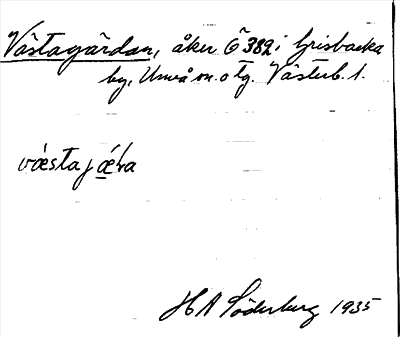 Västagärdan, åker Ö 382 i Grisbacka
by, Umeå sn. o tg. Västerb. l.
væ̀stajæ̀ɽa
H A Söderberg 1935